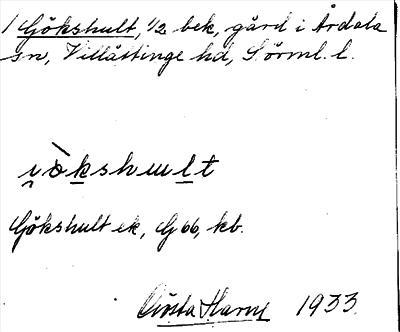 1 Gökshult, 1/2 bek, gård i Årdala
sn, Villåttinge hd, Sörml. l.
i̯ò̀kshult
Gökshult ek, G 66, kb.
Gösta Harry 1933.